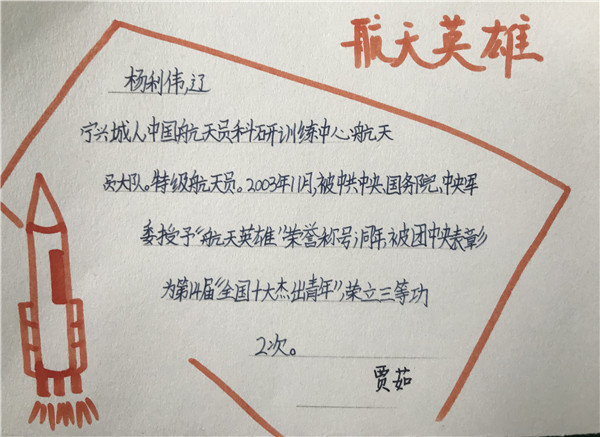 航天英雄
杨利伟,辽
宁兴城人中国航天员科研训练中心航天
员大队。特级航天员。2003年11月,被中共中央、国务院、中央军
委授予“航天英雄”荣誉称号;同年,被团中央表彰
为第14届“全国十大杰出青年”,荣立三等功
2次。
贾茹